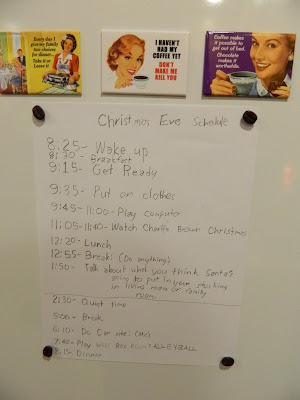 Every day I
give my family
two choices
for dinner...
Take it or
Leave it!
I HAVEN'T
HAD MY
COFFEE YET
DON'T
MAKE ME
KILL YOU
Coffee makes
it possible to
get out of bed.
Chocolate
makes it
worthwhile.
Christmas Eve Schedule
8:25- Wake up
8:30- Breakfast
9:15- Get Ready
9:35- Put on clothes
9:45-11:00- Play computer
11:05-11:40- Watch Charlie Brown Christmas
12:20- Lunch
12:55- Break: (Do anything)
1:50- Talk about what you think Santa's
going to put in your stocking
in living room or family
room
2:30- Quiet time
5:00- Break
6:10- Do
7:40- Play Wii
8:15- Dinner